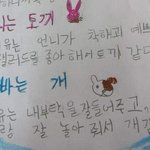 는 토끼
유는 언니가 착하고 예쁘
샐러드를 좋아해서 토끼 같다
바는 개
유는 내 부탁을 잘 들어주고
랑 잘 놀아 줘서 개같